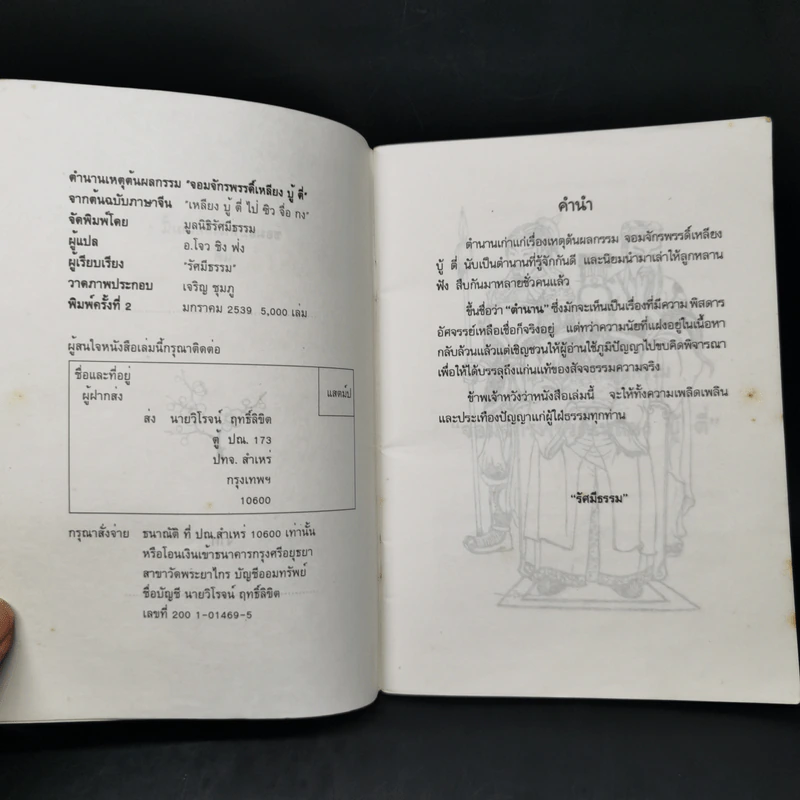 ตำนานเหตุต้นผลกรรม "จอมจักรพรรดิ์เหลียง บู้ ตี่"
จากต้นฉบับภาษาจีน "เหลียง บู้ ตี่ ไป่ ซิว จื่อ กง"
จัดพิมพ์โดย มูลนิธิรัศมีธรรม
ผู้แปล อ.โจว ชิง ฟง
ผู้เรียบเรียง "รัศมีธรรม"
วาดภาพประกอบ เจริญ ชุมภู
พิมพ์ครั้งที่ 2 มกราคม 2539 5,000 เล่ม
ผู้สนใจหนังสือเล่มนี้กรุณาติดต่อ
ชื่อและที่อยู่
ผู้ฝากส่ง
แสตมป์
ส่ง นายวิโรจน์ ฤทธิ์ลิขิต
ตู้ ปณ. 173
ปทจ. สำเหร่
กรุงเทพฯ
10600
กรุณาสั่งจ่าย ธนาณัติ ที่ ปณ.สำเหร่ 10600 เท่านั้น
หรือโอนเงินเข้าธนาคารกรุงศรีอยุธยา
สาขาวัดพระยาไกร บัญชีออมทรัพย์
ชื่อบัญชี นายวิโรจน์ ฤทธิ์ลิขิต
เลขที่ 200 1-01469-5
คำนำ
ตำนานเก่าแก่เรื่องเหตุต้นผลกรรม จอมจักรพรรดิ์เหลียง
บู้ ตี่ นับเป็นตำนานที่รู้จักกันดี และนิยมนำมาเล่าให้ลูกหลาน
ฟัง สืบกันมาหลายชั่วคนแล้ว
ขึ้นชื่อว่า "ตำนาน" ซึ่งมักจะเห็นเป็นเรื่องที่มีความ พิสดาร
อัศจรรย์เหลือเชื่อก็จริงอยู่ แต่ทว่าความนัยที่แฝงอยู่ในเนื้อหา
กลับล้วนแล้วแต่เชิญชวนให้ผู้อ่านใช้ภูมิปัญญาไปขบคิดพิจารณา
เพื่อให้ได้บรรลุถึงแก่นแท้ของสัจธรรมความจริง
ข้าพเจ้าหวังว่าหนังสือเล่มนี้ จะให้ทั้งความเพลิดเพลิน
และประเทืองปัญญาแก่ผู้ใฝ่ธรรมทุกท่าน
"รัศมีธรรม"